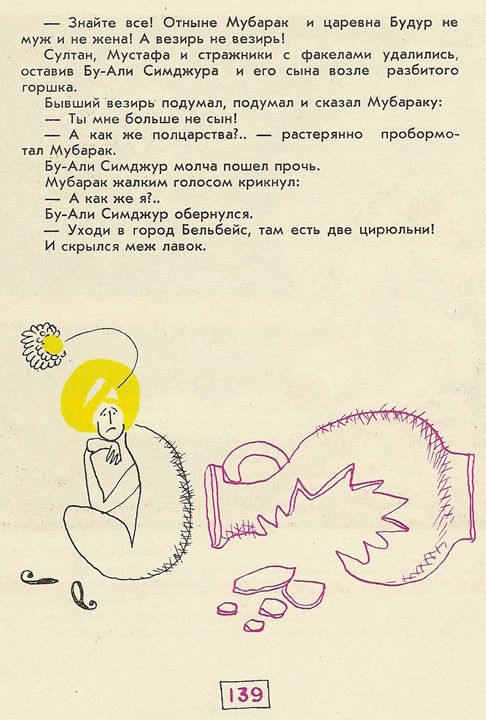 — Знайте все! Отныне Мубарак и царевна Будур не
муж и не жена! А везирь не везирь!
Султан, Мустафа и стражники с факелами удалились,
оставив Бу-Али Симджура и его сына возле разбитого
горшка.
Бывший везирь подумал, подумал и сказал Мубараку:
— Ты мне больше не сын!
— А как же полцарства?.. — растерянно пробормо-
тал Мубарак.
Бу-Али Симджур молча пошел прочь.
Мубарак жалким голосом крикнул:
— А как же я?..
Бу-Али Симджур обернулся.
— Уходи в город Бельбейс, там есть две цирюльни!
И скрылся меж лавок.
139